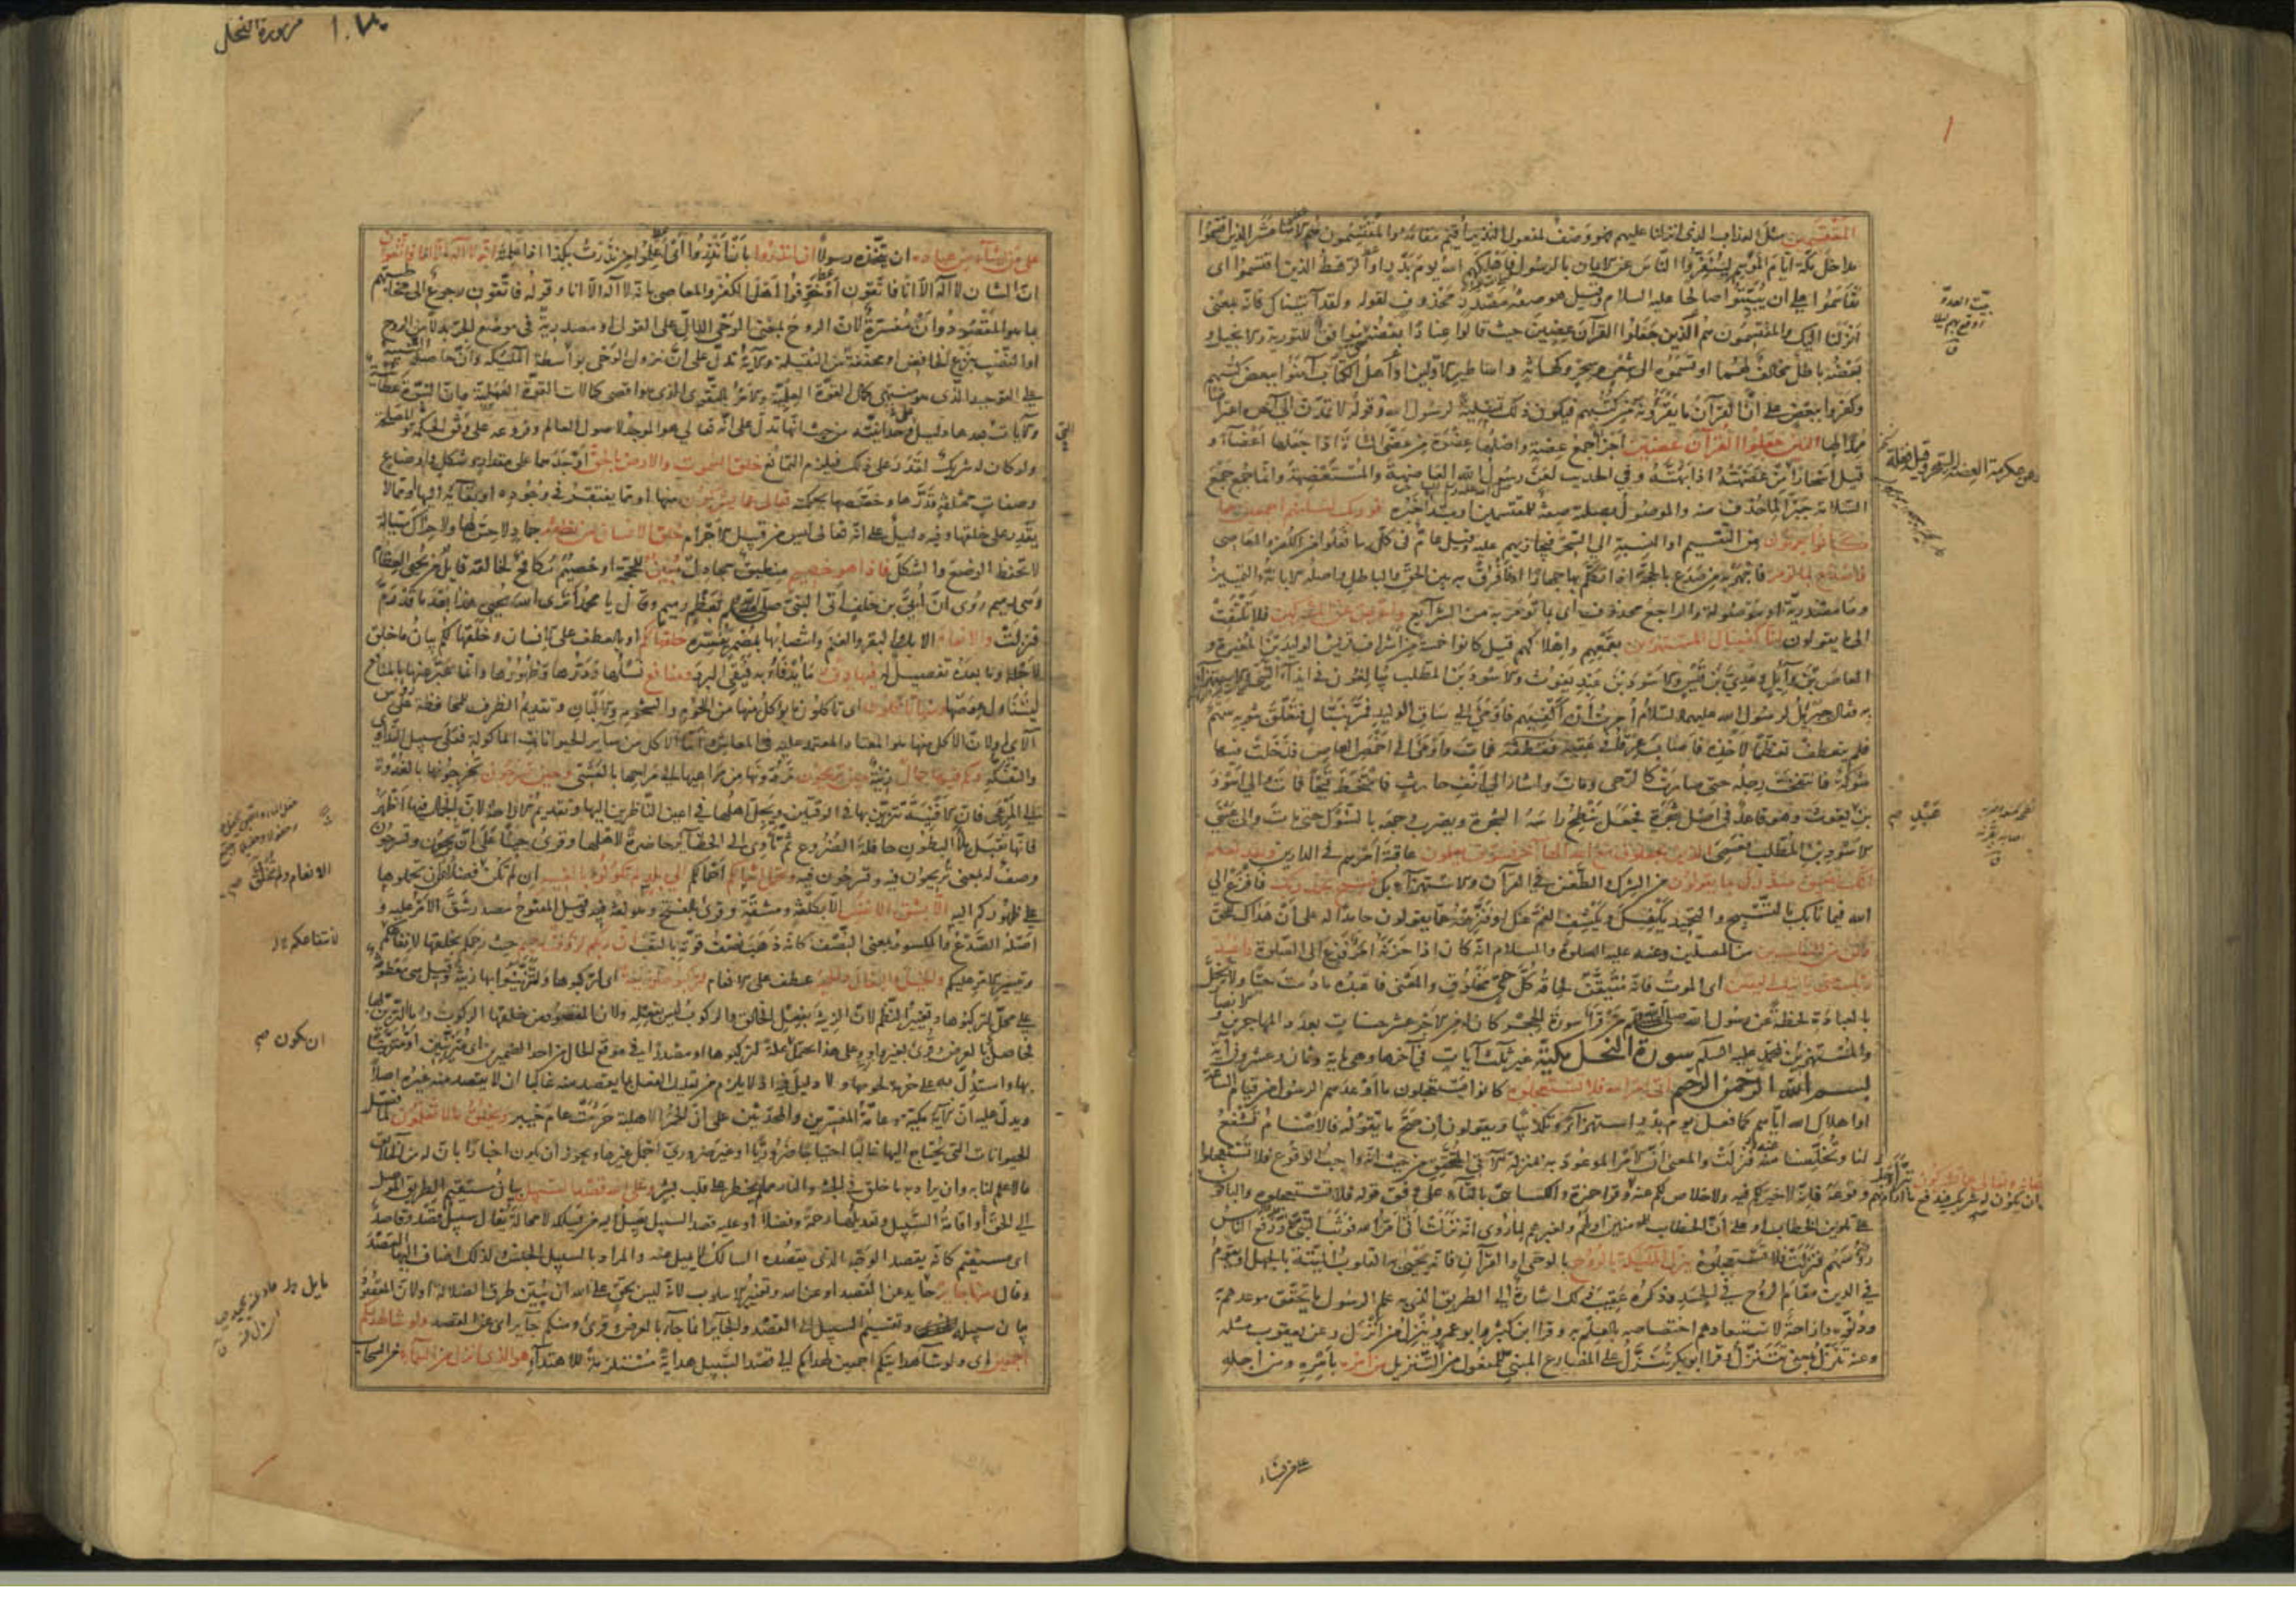 المقتسمين مثل العذاب الذي انزلنا عليهم فهو وصف لمفعول النذير اقيم مقامه والمقتسمون هم الاثنا عشر الذين اقتسموا
مداخل مكة ايام الموسم لينفروا الناس عن الايمان بالرسول فاهلكهم الله يوم بدر او الرهط الذين اقتسموا اى
تقاسموا على ان يبيتوا صالحا عليه السلام وقيل هو صفة مصدر محذوف لقوله ولقد آتيناك فانه بمعنى
انزلنا اليك والمقتسمون هم الذين جعلوا القرآن عضين حيث قالوا عنادا بعضه موافق للتورية والانجيل و
بعضه باطل مخالف لهما او قسموه الى شعر وسحر وكهانة واساطير الاولين او اهل الكتاب آمنوا ببعض كتبهم
وكفروا ببعض على ان القرآن ما يقرؤنه من كتبهم فيكون ذلك تسلية لرسول الله وقوله لا تمدن الى آخره اعتراضا
ممدا لها الذين جعلوا القرآن عضين اجزاء جمع عضة واصلها عضوة من عضى الشاة اذا جعلها اعضاء و
قيل اسحارا من عضهته اذا بهته وفي الحديث لعن رسول الله العاضهة والمستعضهة وانما جمع جمع
السلامة جبرا لما حذف منه والموصول بصلته صفة للمقتسمين او مبتدأ خبره فوربك لنسألنهم اجمعين عما
كانوا يعملون من التقسيم او النسبة الى السحر فنجازيهم عليه وقيل عام في كل ما فعلوا من الكفر والمعاصى
فاصدع بما تؤمر فاجهر به من صدع بالحجة اذا تكلم بها جهارا او فافرق به بين الحق والباطل واصله الابانة والتمييز
وما مصدرية او موصولة والراجع محذوف اى بما تؤمر به من الشرايع واعرض عن المشركين فلا تلتفت
الى ما يقولون انا كفيناك المستهزئين بقمعهم واهلاكهم قيل كانوا خمسة من اشراف قريش الوليد بن المغيرة و
العاص بن وائل وعدي بن قيس والاسود بن عبد يغوث والاسود بن المطلب يبالغون في ايذاء النبي والاستهزاء
به فقال جبريل لرسول الله عليهما السلام امرت ان اكفيكهم فاومى الى ساق الوليد فمر بنبال فتعلق بثوبه سهم
فلم ينعطف تعظما لاخذه فاصاب عرقا في عقبه فقطعه فمات واومى الى اخمص العاص فدخلت فيها
شوكة فانتفخت رجله حتى صارت كالرحى ومات واشار الى انف حارث فامتخط قيحا فمات والى اسود
بن يغوث وهو قاعد في اصل شجرة فجعل ينطح رأسه الشجرة ويضرب وجهه بالشوك حتى مات والى عيني
الاسود بن المطلب فعمى الذين يجعلون مع الله الها آخر فسوف يعلمون عاقبة امرهم في الدارين ولقد نعلم
انك يضيق صدرك بما يقولون من الشرك والطعن في القرآن والاستهزاء بك فسبح بحمد ربك فافزع الى
الله فيما نابك بالتسبيح والتحميد يكفيك ويكشف الغم عنك او فنزهه عما يقولون حامدا له على ان هداك للحق
وكن من الساجدين من المصلين وعنه عليه الصلوة والسلام انه كان اذا حزبه امر فزع الى الصلوة واعبد
ربك حتى يأتيك اليقين اى الموت فانه متيقن لحاقه كل حي مخلوق والمعنى فاعبده ما دمت حيا ولا تخل
بالعبادة لحظة عن رسول الله صلى الله عليه وسلم من قرأ سورة الحجر كان له من الاجر عشر حسنات بعدد المهاجرين و
والمستهزئين بمحمد عليه السلم سورة النحل مكية غير ثلث آيات في آخرها وهى ماية وثمان وعشرون آية
بسم الله الرحمن الرحيم اتى امر الله فلا تستعجلوه كانوا يستعجلون ما اوعدهم الرسول من قيام الساعة
او اهلاك الله اياهم كما فعل يوم بدر استهزاء وتكذيبا ويقولون ان صح ما يقوله فالاصنام تشفع
لنا وتخلصنا منه فنزلت والمعنى ان الامر الموعود به بمنزلة الآتى المتحقق من حيث انه واجب الوقوع فلا تستعجلوا
وقوعه فانه لا خير لكم فيه ولا خلاص لكم عنه وقرأ حمزة والكسائى بالتاء على وفق قوله فلا تستعجلوه والباقون
على تلوين الخطاب او على ان الخطاب للمؤمنين او لهم ولغيرهم لما روى انه نزلت اتى امر الله فوثب النبي ورفع الناس
رؤسهم فنزلت فلا تستعجلوه ينزل الملئكة بالروح بالوحى او القرآن فانه يحيى به القلوب الميتة بالجهل او يقوم
في الدين مقام الروح في الجسد وذكره عقيب ذلك اشارة الى الطريق الذى به علم الرسول ما تحقق موعدهم به
ودنوه وازاحة لاستبعادهم اختصاصه بالعلم به وقرأ ابن كثير وابو عمرو ينزل من انزل وعن يعقوب مثله
وعنه تنزل بمعنى تتنزل وقرأ ابو بكر تنزل على المضارع المبنى للمفعول من التنزيل من امره بامره ومن اجله
على من يشاء
سورة النحل
على من يشاء من عباده ان يتخذه رسولا ان انذروا بان انذروا اى اعلموا من نذرت بكذا اذا علمته انه لا اله الا انا فاتقون
ان الشان لا اله الا انا فاتقون او خوفوا اهل الكفر والمعاصى بانه لا اله الا انا وقوله فاتقون رجوع الى مخاطبتهم
بما هو المقصود وان مفسرة لان الروح بمعنى الوحى الدال على القول او مصدرية في موضع الجر بدلا من الروح
او النصب بنزع الخافض او مخففة من الثقيلة والآية تدل على ان نزول الوحى بواسطة الملئكة وان حاصله التنبيه
على التوحيد الذى هو منتهى كمال القوة العلمية والامر بالتقوى الذى هو اقصى كمالات القوة العملية وان النبوة عطائية
والآيات بعدها دليل وحدانيته من حيث انها تدل على انه تعالى هو الموجد لاصول العالم وفروعه على وفق الحكمة والمصلحة
ولو كان له شريك لقدر على ذلك فيلزم التمانع خلق السموات والارض بالحق اوجدهما على مقدار وشكل واوضاع
وصفات مختلفة قدرها وخصصها بحكمته تعالى عما يشركون منهما او مما يفتقر في وجوده او بقائه اليهما ومما لا
يقدر على خلقهما وفيه دليل على انه تعالى ليس من قبيل الاجرام خلق الانسان من نطفة جماد لا حس لها ولا حراك سيالة
لا تحفظ الوضع والشكل فاذا هو خصيم منطيق مجادل مبين للحجة او خصيم مكافح لخالقه قايل من يحيى العظام
وهى رميم روى ان ابى بن خلف اتى النبي صلى الله عليه وسلم بعظم رميم وقال يا محمد اترى الله يحيى هذا بعد ما قد رم
فنزلت والانعام الابل والبقر والغنم وانتصابها بمضمر يفسره خلقها لكم او بالعطف على الانسان وخلقها لكم بيان ما خلق
لاجله وما بعده تفصيل له فيها دفء ما يدفأ به فيقى البرد ومنافع نسلها ودرها وظهورها وانما عبر عنها بالمنافع
ليتناول عوضها ومنها تأكلون اى تأكلون ما يؤكل منها من اللحوم والشحوم والالبان وتقديم الظرف للمحافظة على رؤس
الآى او لان الاكل منها هو المعتاد المعتمد عليه في المعاش واما الاكل من ساير الحيوانات المأكولة فعلى سبيل التداوى
والتفكه ولكم فيها جمال زينة حين تريحون تردونها من مراعيها الى مراحها بالعشى وحين تسرحون تخرجونها بالغدوة
الى المرعى فان الافنية تتزين بها في الوقتين ويجل اهلها في اعين الناظرين اليها وتقديم الاراحة لان الجمال فيها اظهر
فانها تقبل ملأى البطون حافلة الضروع ثم تأوى الى الحظائر حاضرة لاهلها وقرئ حينا على ان تريحون وتسرحون
وصف له بمعنى تريحون فيه وتسرحون فيه وتحمل اثقالكم احمالكم الى بلد لم تكونوا بالغيه ان لم تكن فضلا ان تحملوها
على ظهوركم اليه الا بشق الانفس الا بكلفة ومشقة وقرئ بالفتح وهو لغة فيه وقيل المفتوح مصدر شق الامر عليه و
اصله الصدع والمكسور بمعنى النصف كانه ذهب نصف قوته بالتعب ان ربكم لرؤف رحيم حيث رحمكم بخلقها لانتفاعكم
وتيسير الامر عليكم والخيل والبغال والحمير عطف على الانعام لتركبوها وزينة اى لتركبوها ولتتزينوا بها زينة وقيل هى معطوفة
على محل لتركبوها وتغيير النظم لان الزينة بفعل الخالق والركوب ليس بفعله ولان المقصود من خلقها الركوب واما التزين بها
فحاصل بالعرض وقرئ بغير واو وعلى هذا يحتمل علة لتركبوها او مصدرا في موقع الحال من احد الضميرين اى متزينين او متزينا
بها واستدل به على حرمة لحومها ولا دليل فيه اذ لا يلزم من تعليل الفعل بما يقصد منه غالبا ان لا يقصد منه غيره اصلا
ويدل عليه ان الآية مكية وعامة المفسرين والمحدثين على ان الحمر الاهلية حرمت عام خيبر ويخلق ما لا تعلمون لما فصل
الحيوانات التى يحتاج اليها غالبا احتياجا ضروريا او غير ضرورى اجمل غيرها ويجوز ان يكون اخبارا بان له من الخلائق
ما لا علم لنا به وان يراد به ما خلق في الجنة والنار مما لم يخطر على قلب بشر وعلى الله قصد السبيل بيان مستقيم الطريق الموصل
الى الحق او اقامة السبيل وتعديلها رحمة وفضلا او عليه قصد السبيل يصل اليه من يسلكه لا محالة يقال سبيل قصد وقاصد
اى مستقيم كانه يقصد الوجه الذى يقصده السالك لا يميل عنه والمراد بالسبيل الجنس ولذلك اضاف اليها القصد
وقال ومنها جاير حايد عن القصد او عن الله وتغيير الاسلوب لانه ليس بحق على الله ان يبين طرق الضلالة او لان المقصود
بيان سبيله وتقسيم السبيل الى القصد والجاير انما جاء بالعرض وقرئ ومنكم جاير اى عن القصد ولو شاء لهديكم
اجمعين اى ولو شاء هدايتكم اجمعين لهديكم الى قصد السبيل هداية مستلزمة للاهتداء هو الذى انزل من السماء من السحاب
الانعام ولم يخلق صح
لانتفاعكم
ان يكون صح